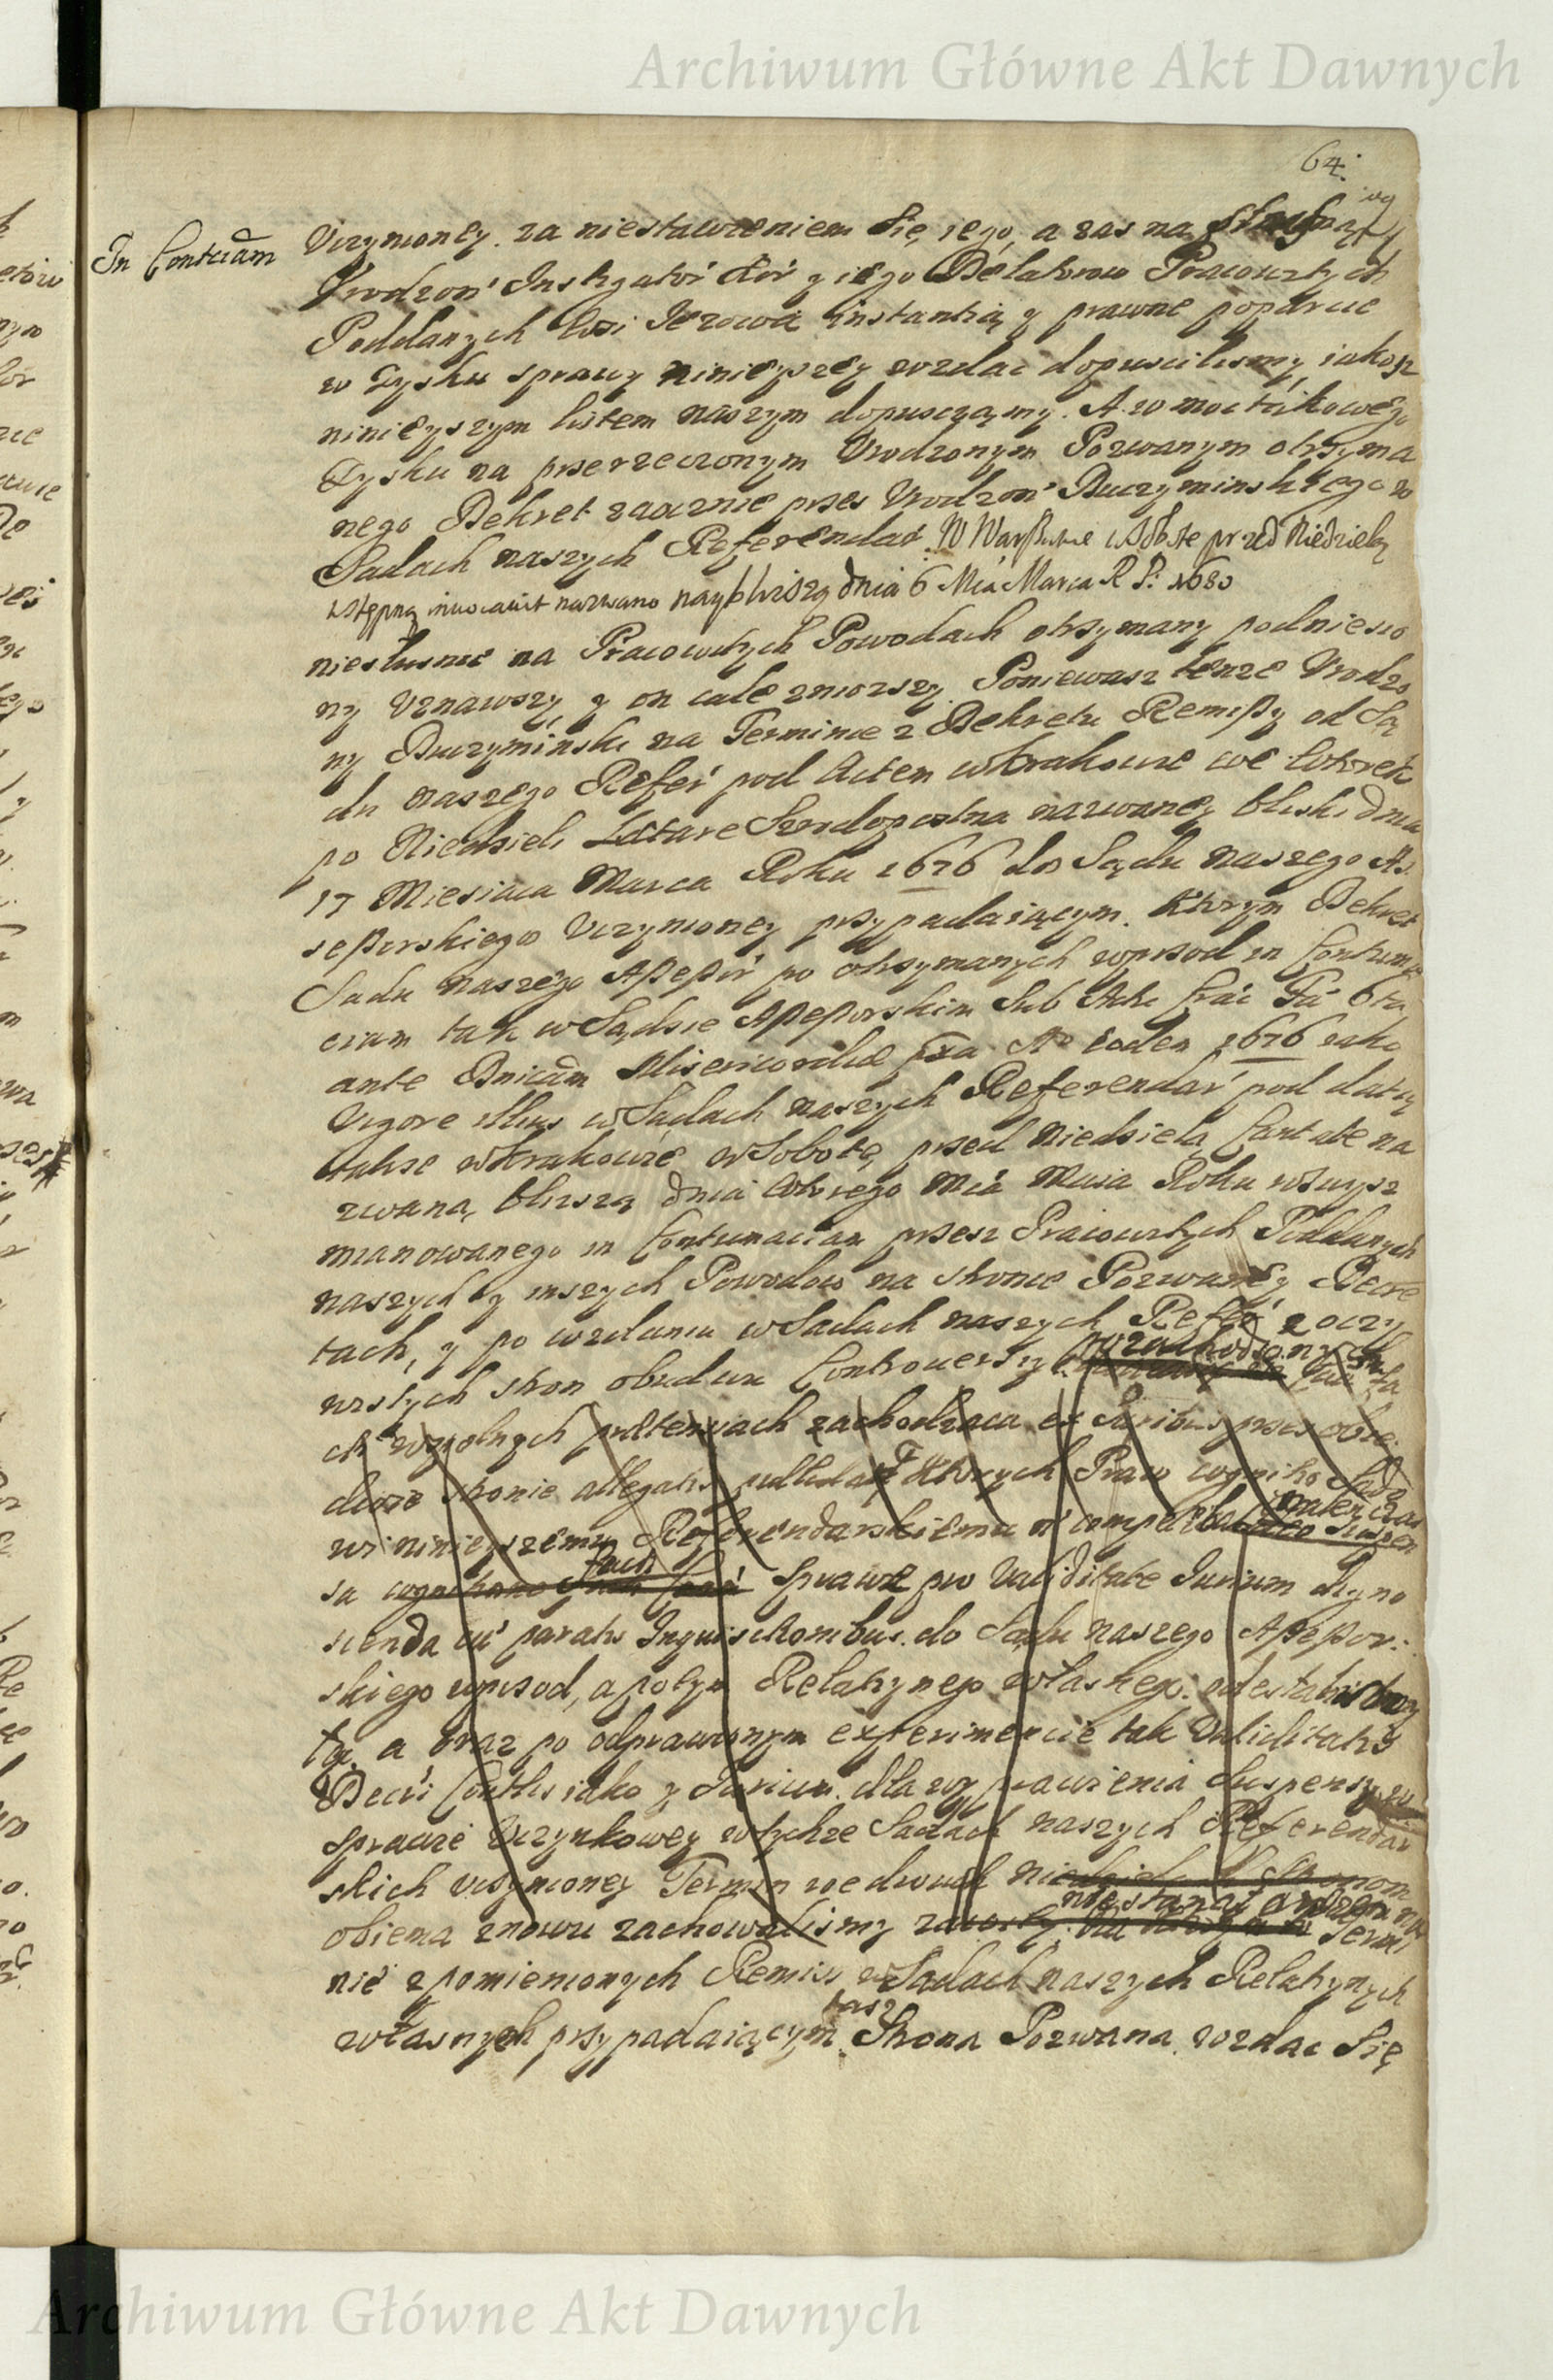 Archiwum Główne Akt Dawnych
64.
In Contciam
Uczynioney za niestawieniem Się iego, a zas na
Urodzon Instigator Kor y iego Delatorow Pracowitych
Poddanych Wsi Jezowa instantią y prawne poparcie
w Zysku sprawy ninieyszey wzdac dopuscilismy, iakosz
ninieyszym listem naszym dopusczamy. A w moc takowego
Zysku na przerzeczonym Urodzonym Pozwanym otrzyma
nego Dekret zaocznie przes Urodzon Buczyminskiego w
Sadach naszych Referendar W Warszawie w Sobote przed Niedzielą
wstępną invocavit nazwano nayblizszą dnia 6 Mca Marca R P: 1680
niesłusnie na Pracowitych Powodach otrzymany podniesio
ny Uznawszy y on cale zniozszy. Poniewasz tenze Urodzo
ny Buczyminski na Terminie z Dekretu Remissy od Są
du naszego Refer pod Actem w Krakowie we Wtorek
po Niedzieli Lætare Szrodopostna nazwaney bliski dnia
17 Miesiaca Marca Roku 1676 do Sądu naszego As
sessorskiego Uczynioney przypadaiącym. Ktorym Dekret
Sadu naszego Assessor po otrzymanych wprzod in Contuma
ciam tak w Sądzie Assessorskim Sub Actu Crac Fa 6ta
ante Dnicam Misericordiæ Aº eodem 1676 iako
Vigore illius w Sadach naszych Referendar pod datą
takze w Krakowie w Sobotę przed Niedzielą Cantate na
zwaną blizszą dnia wtorego Mca Maia Roku wzwysz
mianowanego in Contumaciam przesz Pracowitych Poddanych
naszych y inszych Powodow na stronie Pozwaney Decre
tach, y po wzdaniu w Sadach naszych Refer z oczy
wistych stron obudwu Controwersyi
ch wzgolnych prætensyach zachodzaca ex Juribus przes obie
dwie stronie allegatis Ktorych Praw cognitio Sado
wi ninieyszemu Referendarskiemu
sa Sprawe pro Validitate Jurium
scienda cu paratis Inquisitionibus do Sądu naszego Assessor:
skiego wprzod, a potym Relatynego własnego
a oraz po odprawionym experimencie tak Validitatis
Decri Conttis iako y Jurium dla wyprawienia Suspensy w
Sprawie Uczynkowey w tychze Sadach naszych Referendar
skich uczynioney Termin we dwuch
obiema znowu zachowalismy Termi
nie z pomienionych Remiss w Sadach naszych Relatynych
własnych przypadaiącym Strona Pozwana wzdac Się
Archiwum Główne Akt Dawnych